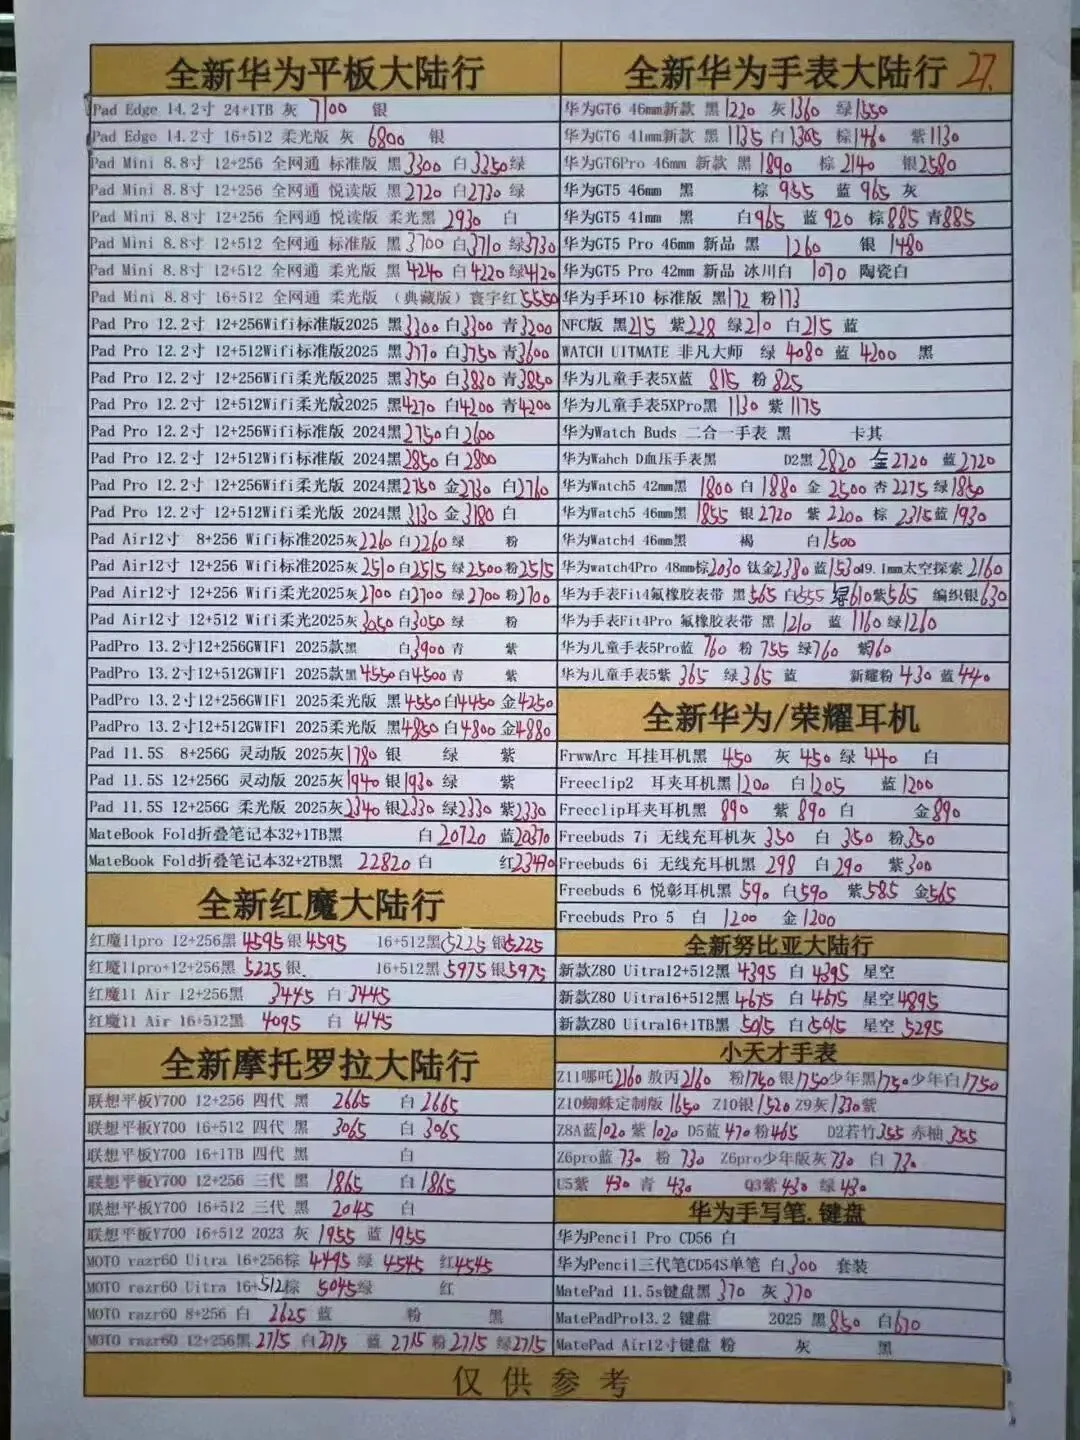 全新华为平板大陆行
Pad Edge 14.2寸 24+1TB 灰 7100 银
Pad Edge 14.2寸 16+512 柔光版 灰 6800 银
Pad Mini 8.8寸 12+256 全网通 标准版 黑3300 白3250绿
Pad Mini 8.8寸 12+256 全网通 悦读版 黑2720 白2730 绿
Pad Mini 8.8寸 12+256 全网通 悦读版 柔光黑 2930 白
Pad Mini 8.8寸 12+512 全网通 标准版 黑3700 白3710 绿3730
Pad Mini 8.8寸 12+512 全网通 柔光版 黑4240 白4220 绿4120
Pad Mini 8.8寸 16+512 全网通 柔光版 （典藏版）寰宇红5550
Pad Pro 12.2寸 12+256Wifi标准版2025 黑3300 白3300 青3200
Pad Pro 12.2寸 12+512Wifi标准版2025 黑3770 白3750 青3600
Pad Pro 12.2寸 12+256Wifi柔光版2025 黑3750 白3830 青3850
Pad Pro 12.2寸 12+512Wifi柔光版2025 黑4270 白4200 青4200
Pad Pro 12.2寸 12+256Wifi标准版 2024黑2750白2600
Pad Pro 12.2寸 12+512Wifi标准版 2024黑2850 白2800
Pad Pro 12.2寸 12+256Wifi柔光版 2024黑2750 金2730 白2760
Pad Pro 12.2寸 12+512Wifi柔光版 2024黑3130 金3180 白
Pad Air12寸 8+256 Wifi标准2025灰2260白2260绿 粉
Pad Air12寸 12+256 Wifi标准2025灰2510白2515 绿2500粉2515
Pad Air12寸 12+256 Wifi柔光2025灰2700白2700 绿2700粉2700
Pad Air12寸 12+512 Wifi柔光2025灰3050白3050 绿 粉
PadPro 13.2寸12+256GWIF1 2025款黑 白3900青 紫
PadPro 13.2寸12+512GWIF1 2025款黑4550白4500 青 紫
PadPro 13.2寸12+256GWIF1 2025柔光版 黑4550白4450 金4250
PadPro 13.2寸12+512GWIF1 2025柔光版 黑4850白4800 金4880
Pad 11.5S 8+256G 灵动版 2025灰1780 银 绿 紫
Pad 11.5S 12+256G 灵动版 2025灰1940银1930 绿 紫
Pad 11.5S 12+256G 柔光版 2025灰2340银2330 绿2330 紫2330
MateBook Fold折叠笔记本32+1TB黑 白20720 蓝20370
MateBook Fold折叠笔记本32+2TB黑 22820 白 红23490
全新红魔大陆行
红魔11pro 12+256黑4595银4595 16+512黑5225 银5225
红魔11pro+12+256黑 5225银. 16+512黑5975 银5975
红魔11 Air 12+256黑 3445 白3445
红魔11 Air 16+512黑 4095 白 4145
全新摩托罗拉大陆行
联想平板Y700 12+256 四代 黑 2665 白2665
联想平板Y700 16+512 四代 黑 3065 白3065
联想平板Y700 16+1TB 四代 黑 白
联想平板Y700 12+256 三代 黑 1865 白1865
联想平板Y700 16+512 三代 黑 2045 白
联想平板Y700 16+512 2023 灰 1955 蓝1955
MOTO razr60 Uitra 16+256棕 4495 绿 4545 红4545
MOTO razr60 Uitra 16+512棕 5045绿 红
MOTO razr60 8+256 白 2625 蓝 粉 黑
MOTO razr60 12+256黑2715 白2715 蓝2715 粉2715 绿2715
全新华为手表大陆行 27.
华为GT6 46mm新款 黑1220 灰1360 绿1550
华为GT6 41mm新款 黑1135白1305 棕1460 紫1130
华为GT6Pro 46mm 新款 黑1890 棕2140 银2580
华为GT5 46mm 黑 棕 955 蓝965 灰
华为GT5 41mm 黑 白965 蓝920 棕885青885
华为GT5 Pro 46mm 新品 黑 1260 银 1480
华为GT5 Pro 42mm 新品 冰川白 1070 陶瓷白
华为手环10 标准版 黑172 粉173
NFC版 黑215 紫228 绿210 白215 蓝
WATCH UITMATE 非凡大师 绿 4080 蓝 4200 黑
华为儿童手表5X蓝 815 粉825
华为儿童手表5XPro黑 1130 紫1175
华为Watch Buds 二合一手表 黑 卡其
华为Wahch D血压手表黑 D2黑2820 金2720 蓝2720
华为Watch5 42mm黑 1800 白1880 金2500杏2275绿1850
华为Watch5 46mm黑 1855 银2720 紫2200 棕2315蓝1930
华为Watch4 46mm黑 褐 白1500
华为watch4Pro 48mm棕2030 钛金2380 蓝1530 49.1mm太空探索 2160
华为手表Fit4氟橡胶表带 黑565 白555 绿610紫565 编织银630
华为手表Fit4Pro 氟橡胶表带 黑 1210 蓝 1160绿1210
华为儿童手表5Pro蓝 760 粉 755 绿760 紫760
华为儿童手表5紫 365 绿365 蓝 新耀粉430 蓝440
全新华为/荣耀耳机
FrwwArc 耳挂耳机黑 450 灰 450 绿 440 白
Freeclip2 耳夹耳机黑1200 白1205 蓝1200
Freeclip耳夹耳机黑 890 紫890 白 金890
Freebuds 7i 无线充耳机灰 350 白 350 粉350
Freebuds 6i 无线充耳机黑 298 白290 紫300
Freebuds 6 悦彰耳机黑 590 白590 紫585 金565
Freebuds Pro 5 白 1200 金1200
全新努比亚大陆行
新款Z80 Uitra12+512黑4395 白4395 星空
新款Z80 Uitra16+512黑4675 白4675 星空4895
新款Z80 Uitra16+1TB黑 5015 白5015 星空 5295
小天才手表
Z11哪吒2160 敖丙2160 粉1750银1750少年黑1750少年白1750
Z10蜘蛛定制版1650 Z10银1520 Z9灰1330紫
Z8A蓝1020 紫1020 D5蓝470粉465 D2若竹355 赤柚355
Z6pro蓝730 粉 730 Z6pro少年版灰730 白 730
U5紫 430 青 430 Q3紫430 绿430
华为手写笔.键盘
华为Pencil Pro CD56 白
华为Pencil三代笔CD54S单笔 白300 套装
MatePad 11.5s键盘黑370 灰370
MatePadPro13.2 键盘 2025 黑850 白670
MatePad Air12寸键盘 粉 灰 黑
仅供参考